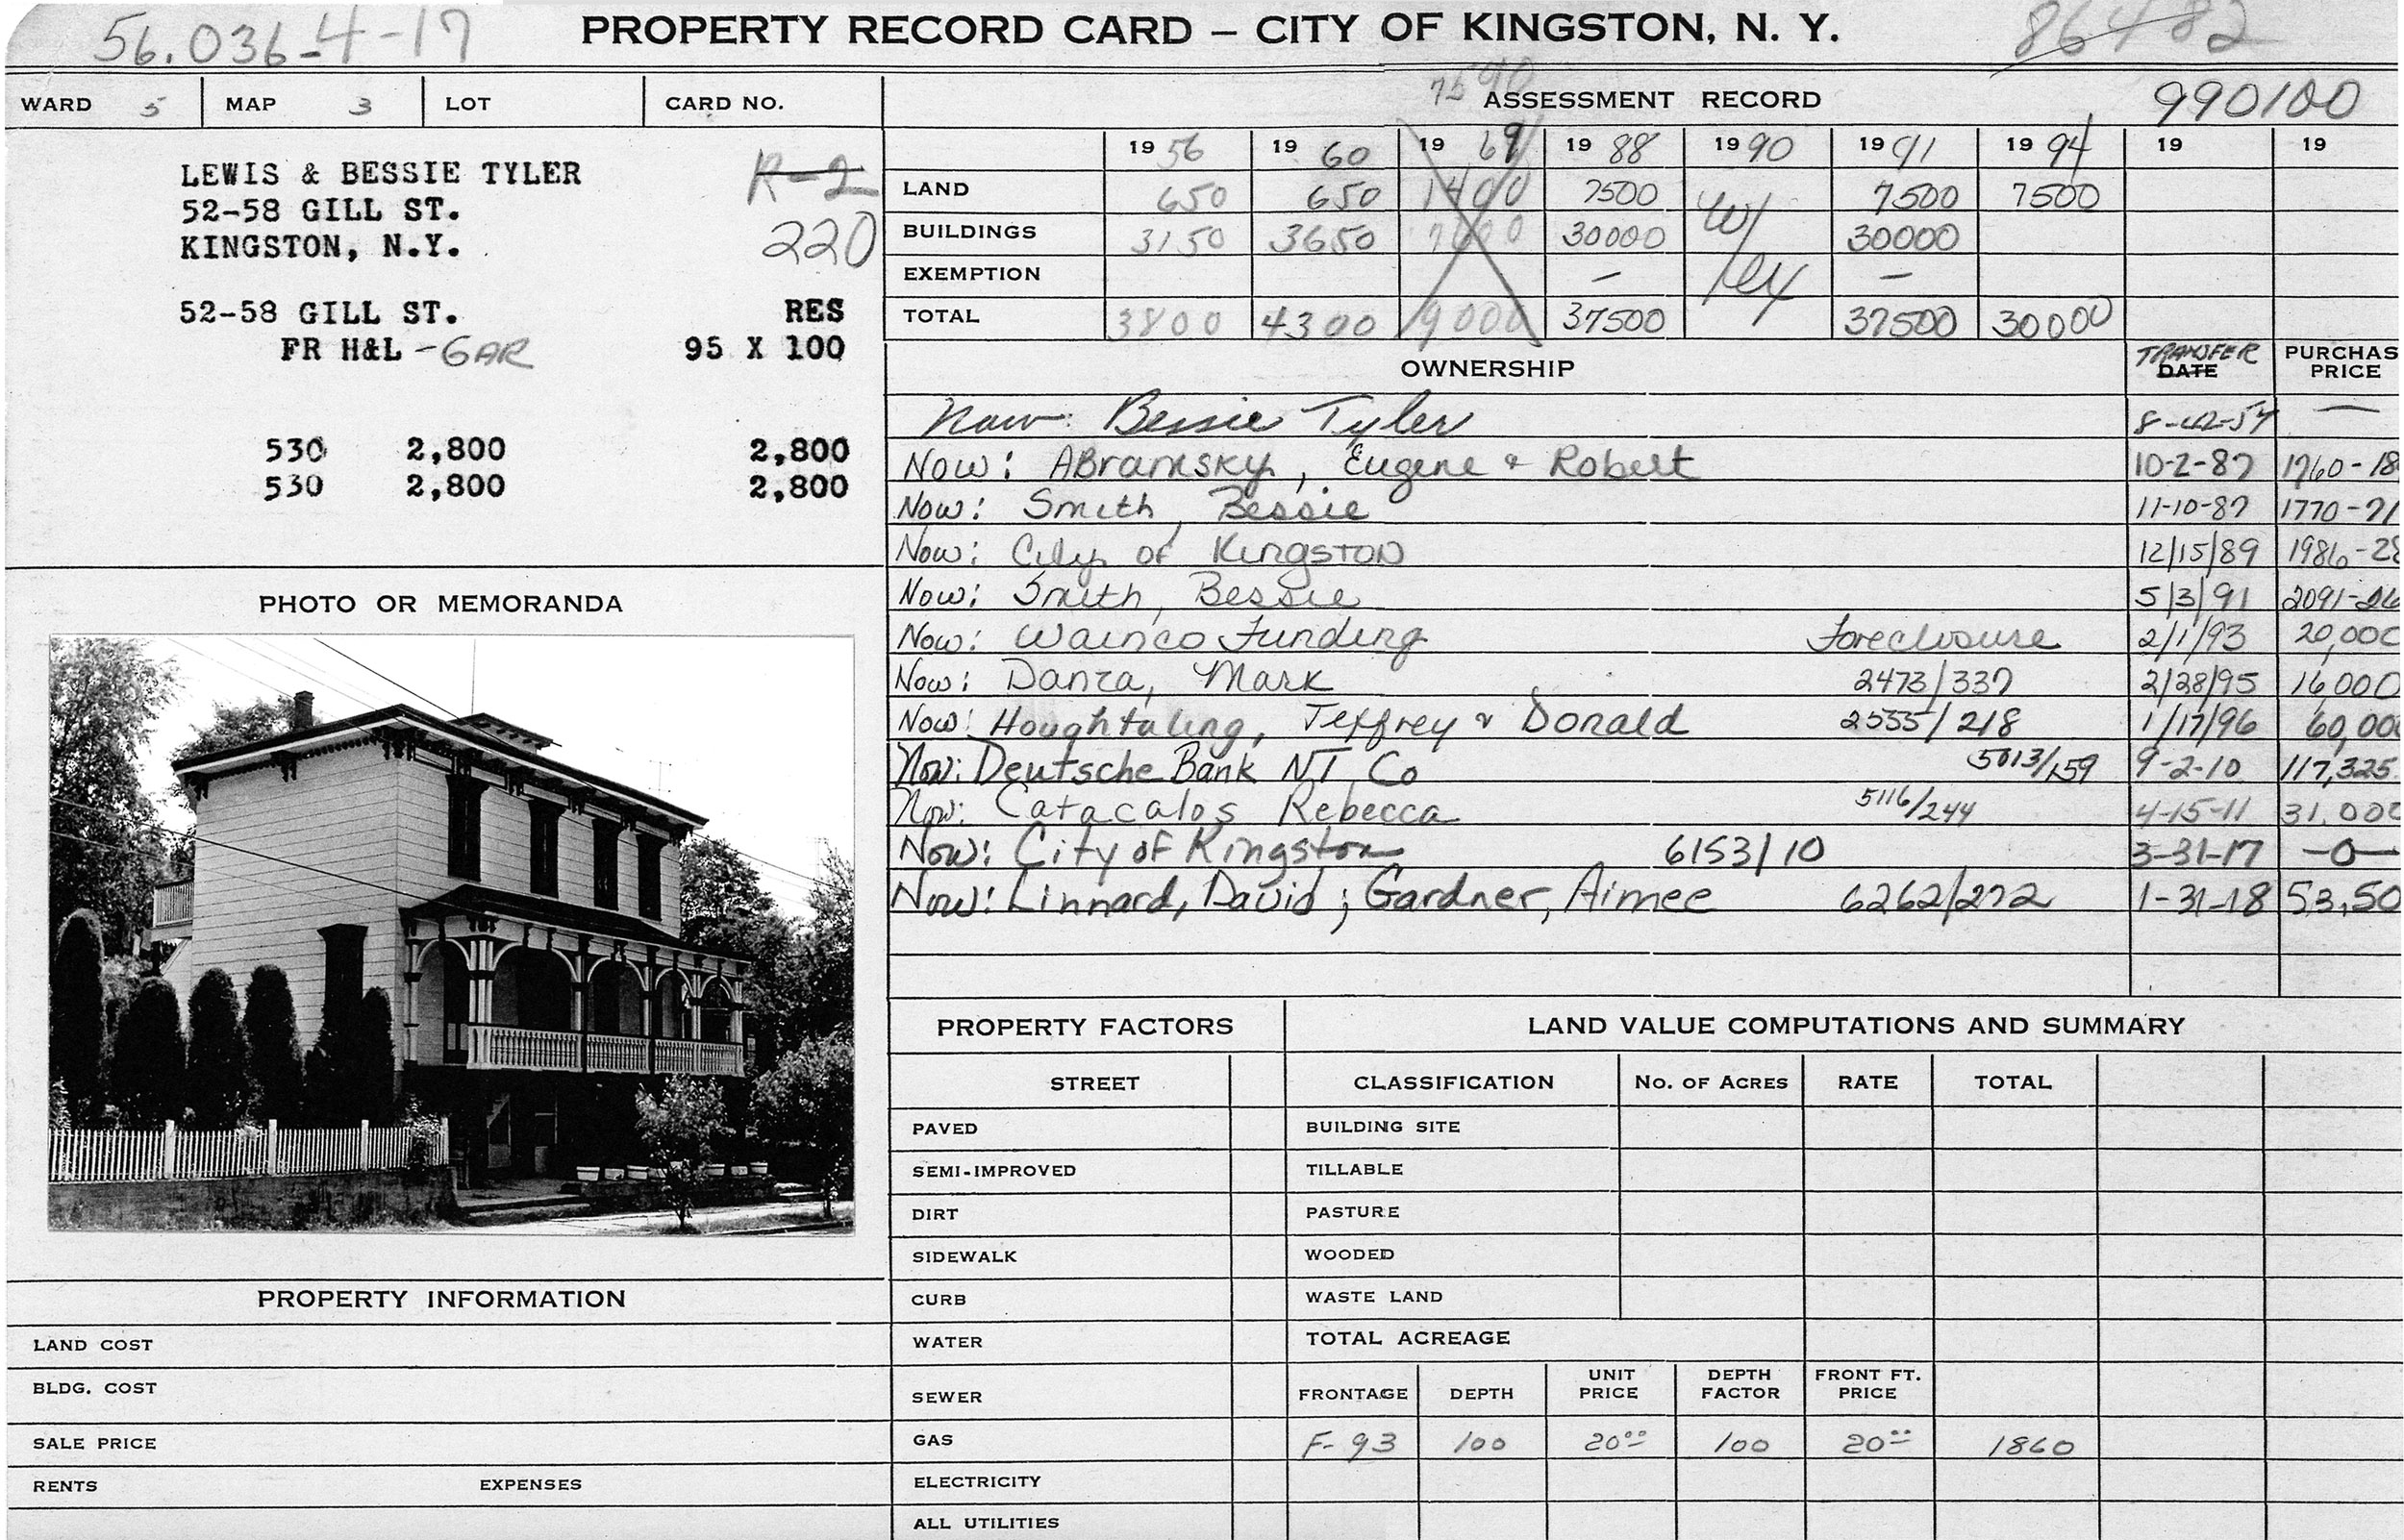 56.036-4-17
PROPERTY RECORD CARD – CITY OF KINGSTON, N. Y.
86482
WARD 5 MAP 3 LOT CARD NO.
7590
ASSESSMENT RECORD
990100
LEWIS & BESSIE TYLER R-2
52-58 GILL ST.
KINGSTON, N.Y. 220
52-58 GILL ST. RES
FR H&L -GAR 95 X 100
530 2,800 2,800
530 2,800 2,800
19 56 19 60 19 69 19 88 19 90 19 91 19 94 19 19
LAND 650 650 1400 7500 W/ 7500 7500
BUILDINGS 3150 3650 30000 30000
EXEMPTION – –
TOTAL 3800 4300 9000 37500 37500 30000
OWNERSHIP TRANSFER DATE PURCHAS PRICE
Now: Bessie Tyler —
Now: Abramsky, Eugene & Robert 10-2-87 1760-18
Now: Smith, Bessie 11-10-87 1770-71
Now: City of Kingston 12/15/89 1986-28
Now: Smith, Bessie 5/3/91 2091-26
Now: Wainco Funding Foreclosure 2/1/93 20,000
Now: Danza, Mark 2473/337 2/28/95 16,000
Now: Houghtaling, Jeffrey & Donald 2555/218 1/17/96 60,000
Now: Deutsche Bank NT Co 5013/159 9-2-10 117,325
Now: Catacalos Rebecca 5116/244 4-15-11 31,000
Now: City of Kingston 6153/10 3-31-17 -0-
Now: Linnard, David; Gardner, Aimee 6262/272 1-31-18 53,50
PHOTO OR MEMORANDA
PROPERTY INFORMATION
LAND COST
BLDG. COST
SALE PRICE
RENTS EXPENSES
PROPERTY FACTORS
STREET
PAVED
SEMI-IMPROVED
DIRT
SIDEWALK
CURB
WATER
SEWER
GAS
ELECTRICITY
ALL UTILITIES
LAND VALUE COMPUTATIONS AND SUMMARY
CLASSIFICATION No. OF ACRES RATE TOTAL
BUILDING SITE
TILLABLE
PASTURE
WOODED
WASTE LAND
TOTAL ACREAGE
FRONTAGE DEPTH UNIT PRICE DEPTH FACTOR FRONT FT. PRICE
F-93 100 20⁰⁰ 100 20⁰⁰ 1860